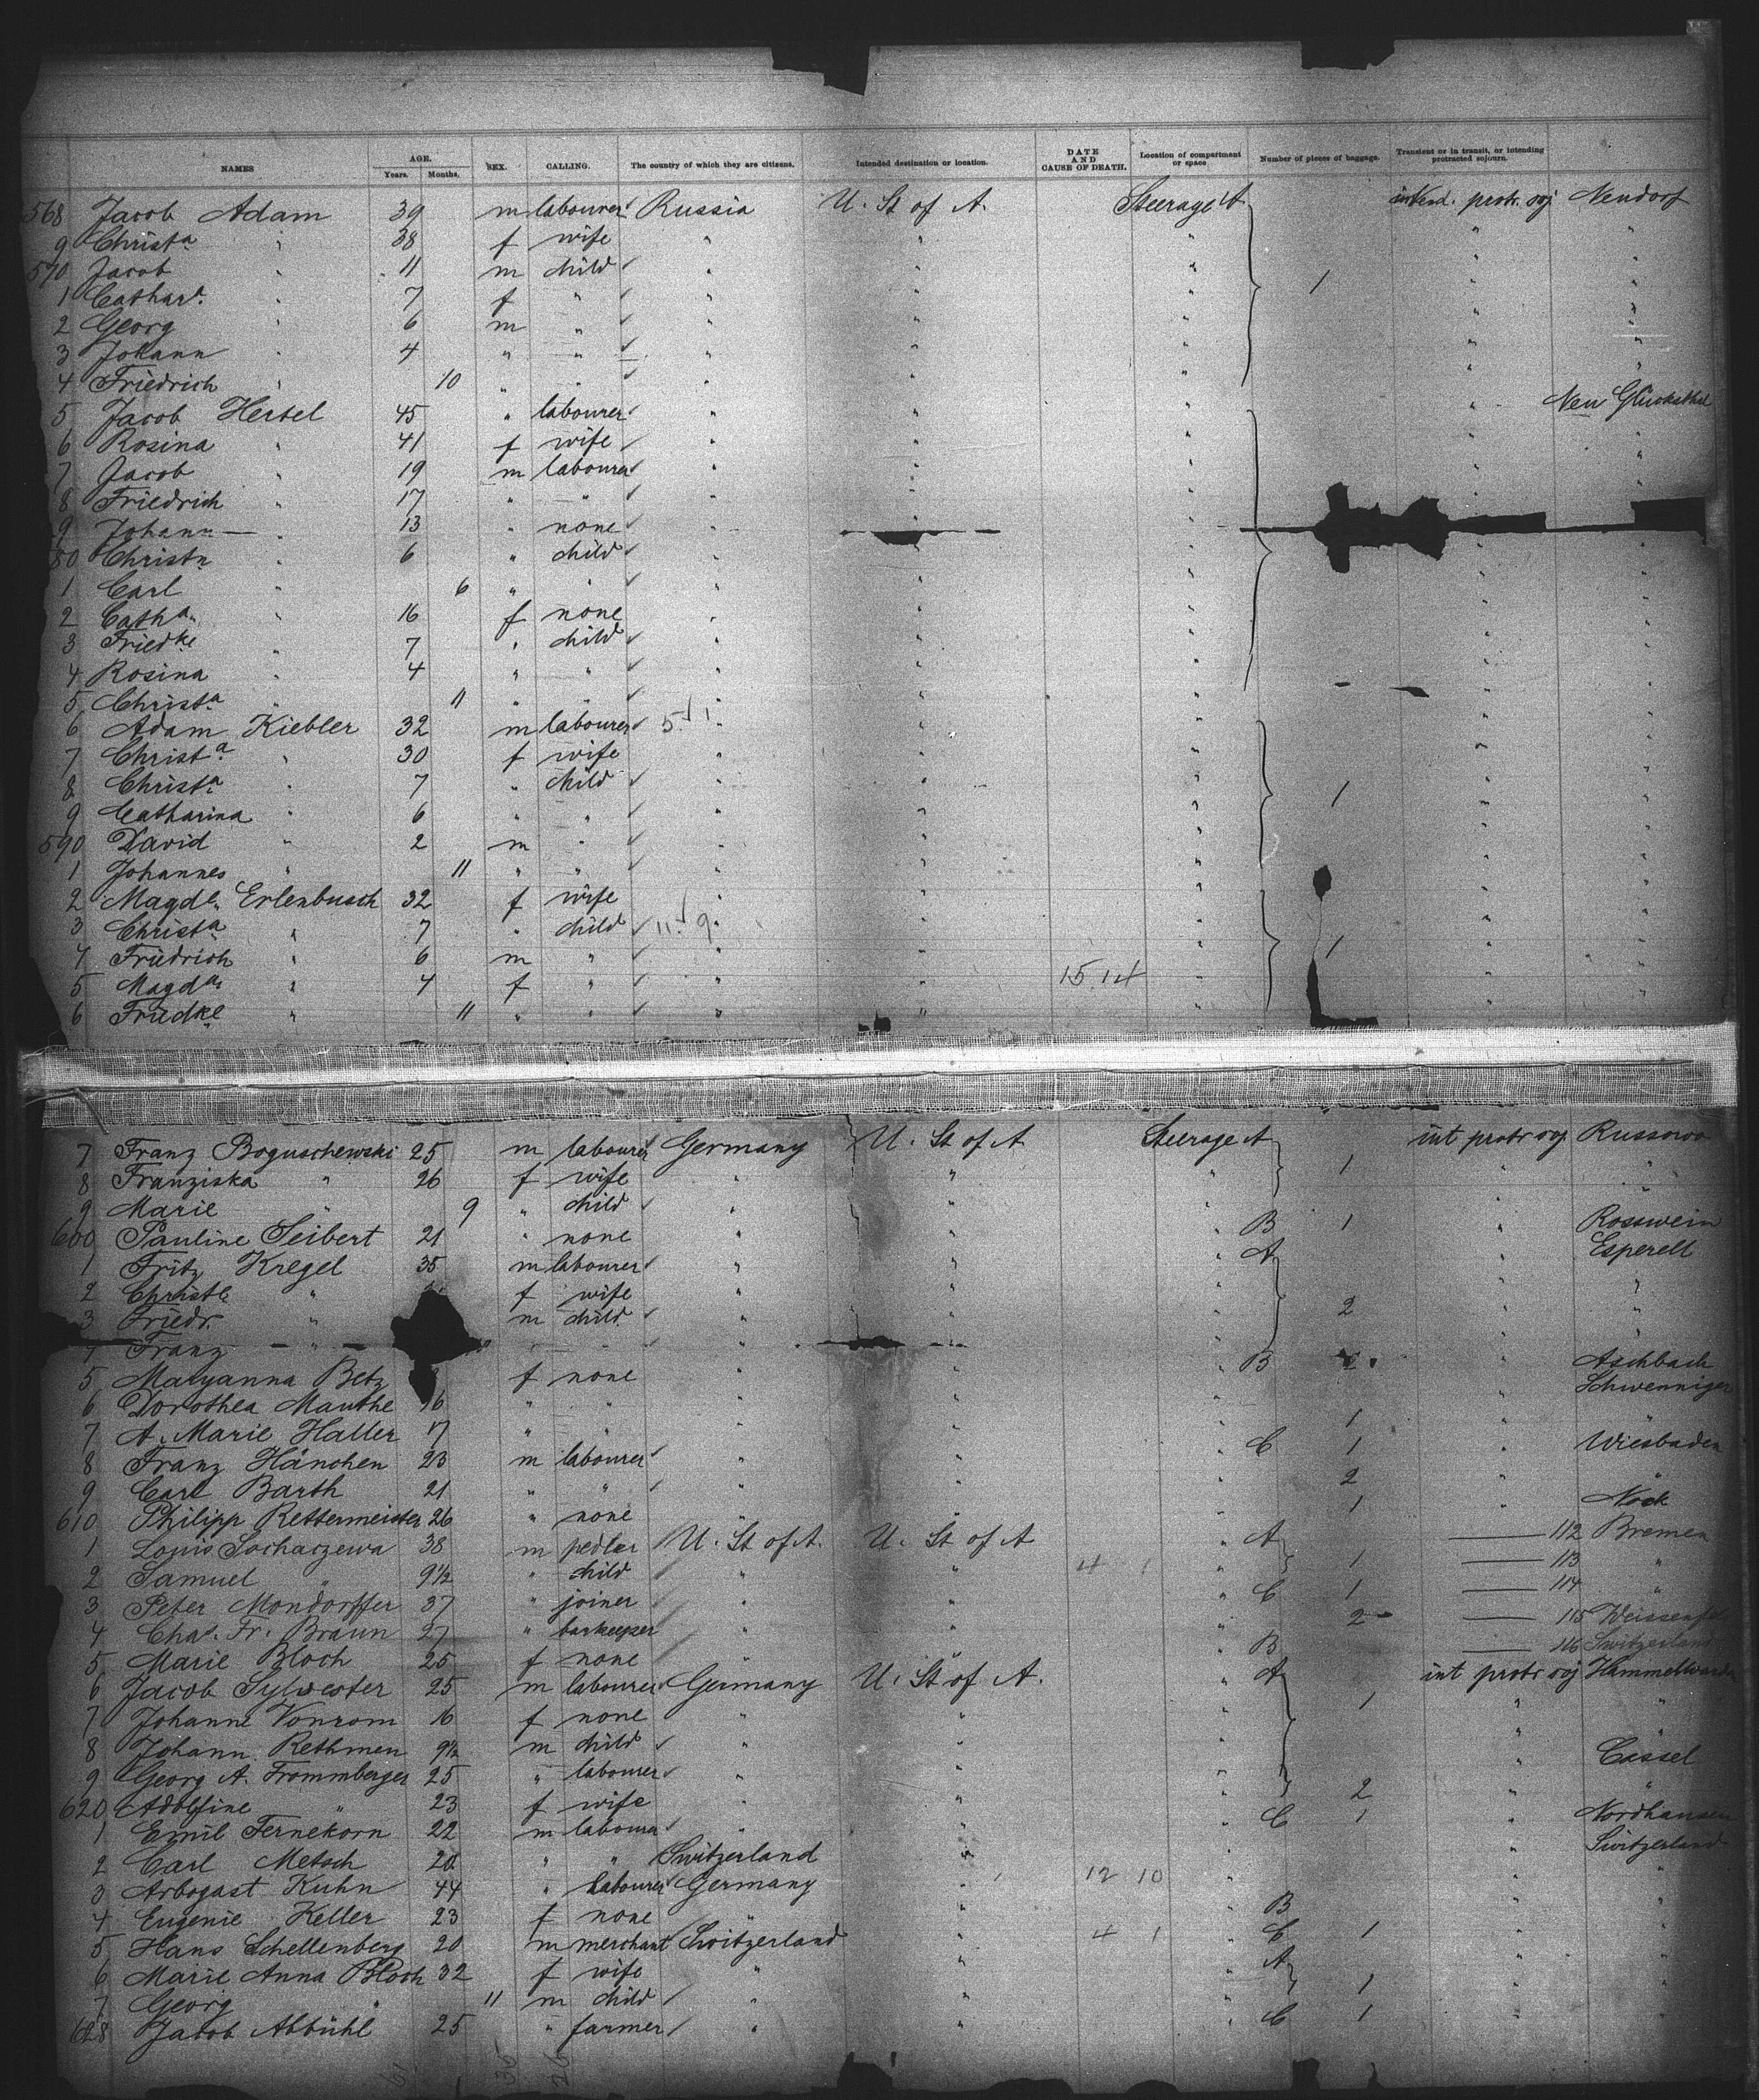 NAMES AGE. Years. Months. SEX. CALLING. The country of which they are citizens. Intended destination or location. DATE AND CAUSE OF DEATH. Location of compartment or space Number of pieces of baggage. Transient or in transit, or intending protracted sojourn.
568 Jacob Adam 39 m labourer Russia U. St of A. Steerage A intend. protr. soj Neudorf
9 Christa " 38 f wife " " " " "
570 Jacob " 11 m child " " " 1 " "
1 Cathar. " 7 f " " " " " "
2 Georg " 6 m " " " " " "
3 Johann " 4 " " " " " " "
4 Friedrich " 10 " " " " " " "
5 Jacob Hertel 45 " labourer " " " " Neu Glücksthal
6 Rosina " 41 f wife " " " " "
7 Jacob " 19 m labourer " " " " "
8 Friedrich " 17 " " " " "
9 Johann " 13 " none " "
80 Christn " 6 " child " " " " "
1 Carl " 6 " " " " " " "
2 Catha. " 16 f none " " " " "
3 Friedke " 7 " child " " " " "
4 Rosina " 4 " " " " " " "
5 Christa " 11 " " " " " " "
6 Adam Kiebler 32 m labourer " " " " "
7 Christa " 30 f wife " " " " "
8 Christa " 7 " child " " " 1 " "
9 Catharina " 6 " " " " " " "
590 David " 2 m " " " " " "
1 Johannes " 11 " " " " " " "
2 Magde. Erlenbusch 32 f wife " " " " "
3 Christa " 7 " child 11 9 " " " " "
4 Friedrich " 6 m " " " " 1 " "
5 Magda. " 4 f " " " 15 14 " " "
6 Friedke " 11 " " " " " "
7 Franz Boguschewski 25 m labourer Germany U. St of A Steerage A int protr soj Russowo
8 Franziska " 26 f wife " " " 1 " "
9 Marie " 9 " child " " " "
600 Pauline Seibert 21 " none " " " B 1 " Rosswein
1 Fritz Kregel 35 m labourer " " " A " Esperell
2 Christe " f wife " " " " "
3 Friedr. " m child " " " 2 " "
4 Franz " " " " " "
5 Maryanna Betz f none " " " B " Aschbach
6 Dorothea Mauthe 16 " " " " " " Schwenningen
7 A. Marie Haller 17 " " " " " 1 " "
8 Franz Hänchen 23 m labourer " " " C 1 " Wiesbaden
9 Carl Barth 21 " " " " " 2 " "
610 Philipp Rettermeister 26 " none " " " 1 " Nock
1 Louis Sochaczewa 38 m pedler U. St of A. U. St of A " A 112 Bremen
2 Samuel " 9½ " child " " 4 1 " 1 113 "
3 Peter Mondorffer 37 " joiner " " " C 1 114 "
4 Chas. Fr. Braun 27 " barkeeper " " " 2 115
5 Marie Bloch 25 f none " " " B 116 Switzerland
6 Jacob Sylvester 25 m labourer Germany U. St of A. " A int protr soj Hammelwarden
7 Johanne Vonrom 16 f none " " " 1 " "
8 Johann Rethmen 9½ m child " " " " "
9 Georg A. Frommberger 25 " labourer " " " " Cassel
620 Adolfine " 23 f wife " " " 2 " "
1 Emil Fernekorn 22 m labourer " " " C 1 " Nordhausen
2 Carl Metsch 20 " " Switzerland " " " Switzerland
3 Arbogast Kuhn 44 " labourer Germany " 12 10 " " "
4 Eugenie Keller 23 f none " " " B " "
5 Hans Schellenberg 20 m merchant Switzerland " 4 1 " C 1 " "
6 Marie Anna Bloch 32 f wife " " " A " "
7 Georg " 11 m child " " " 1 " "
628 Jacob Abbühl 25 " farmer " " " C 1 " "
61 35 26